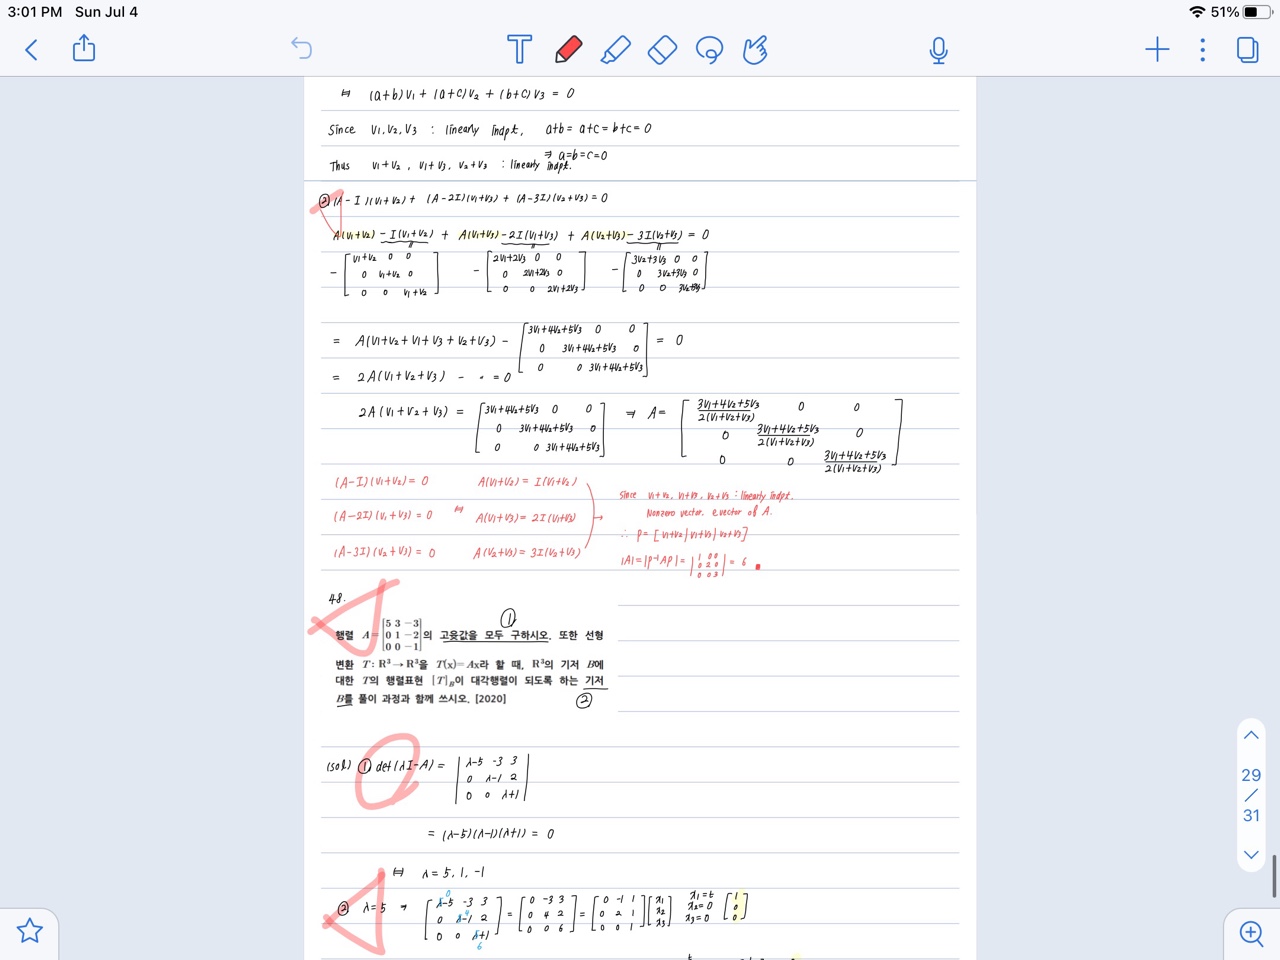 3:01 PM Sun Jul 4
51%
⇔ (a+b)V₁ + (a+c)V₂ + (b+c)V₃ = 0
Since V₁, V₂, V₃ : linearly indpt, a+b = a+c = b+c = 0
⇒ a=b=c=0
Thus V₁+V₂, V₁+V₃, V₂+V₃ : linearly indpt.
② (A-I)(V₁+V₂) + (A-2I)(V₁+V₃) + (A-3I)(V₂+V₃) = 0
A(V₁+V₂) - I(V₁+V₂) + A(V₁+V₃) - 2I(V₁+V₃) + A(V₂+V₃) - 3I(V₂+V₃) = 0
V₁+V₂ 0 0 2V₁+2V₃ 0 0 3V₂+3V₃ 0 0
- 0 V₁+V₂ 0 - 0 2V₁+2V₃ 0 - 0 3V₂+3V₃ 0
0 0 V₁+V₂ 0 0 2V₁+2V₃ 0 0 3V₂+3V₃
3V₁+4V₂+5V₃ 0 0
= A(V₁+V₂+V₁+V₃+V₂+V₃) - 0 3V₁+4V₂+5V₃ 0 = 0
0 0 3V₁+4V₂+5V₃
= 2A(V₁+V₂+V₃) - · = 0
2A(V₁+V₂+V₃) = [3V₁+4V₂+5V₃ 0 0 / 0 3V₁+4V₂+5V₃ 0 / 0 0 3V₁+4V₂+5V₃] ⇒ A = [3V₁+4V₂+5V₃/2(V₁+V₂+V₃) 0 0 / 0 3V₁+4V₂+5V₃/2(V₁+V₂+V₃) 0 / 0 0 3V₁+4V₂+5V₃/2(V₁+V₂+V₃)]
(A-I)(V₁+V₂) = 0 A(V₁+V₂) = I(V₁+V₂)
(A-2I)(V₁+V₃) = 0 ⇔ A(V₁+V₃) = 2I(V₁+V₃) →
(A-3I)(V₂+V₃) = 0 A(V₂+V₃) = 3I(V₂+V₃)
Since V₁+V₂, V₁+V₃, V₂+V₃ : linearly indpt.
Nonzero vector. evector of A.
∴ P = [V₁+V₂ | V₁+V₃ | V₂+V₃]
|A| = |P⁻¹AP| = |1 0 0 / 0 2 0 / 0 0 3| = 6
48.
①
행렬 A = [5 3 -3 / 0 1 -2 / 0 0 -1]의 고윳값을 모두 구하시오. 또한 선형
변환 T : R³ → R³을 T(x)=Ax라 할 때, R³의 기저 B에
대한 T의 행렬표현 [T]_B이 대각행렬이 되도록 하는 기저
B를 풀이 과정과 함께 쓰시오. [2020]
②
(sol) ① det(λI-A) = |λ-5 -3 3 / 0 λ-1 2 / 0 0 λ+1|
= (λ-5)(λ-1)(λ+1) = 0
⇔ λ = 5, 1, -1
② λ=5 ⇒ [λ-5 -3 3 / 0 λ-1 2 / 0 0 λ+1] = [0 -3 3 / 0 4 2 / 0 0 6] = [0 -1 1 / 0 2 1 / 0 0 1] [x₁ / x₂ / x₃] x₁=t x₂=0 x₃=0 [1 / 0 / 0]
0 4 6
29
/
31